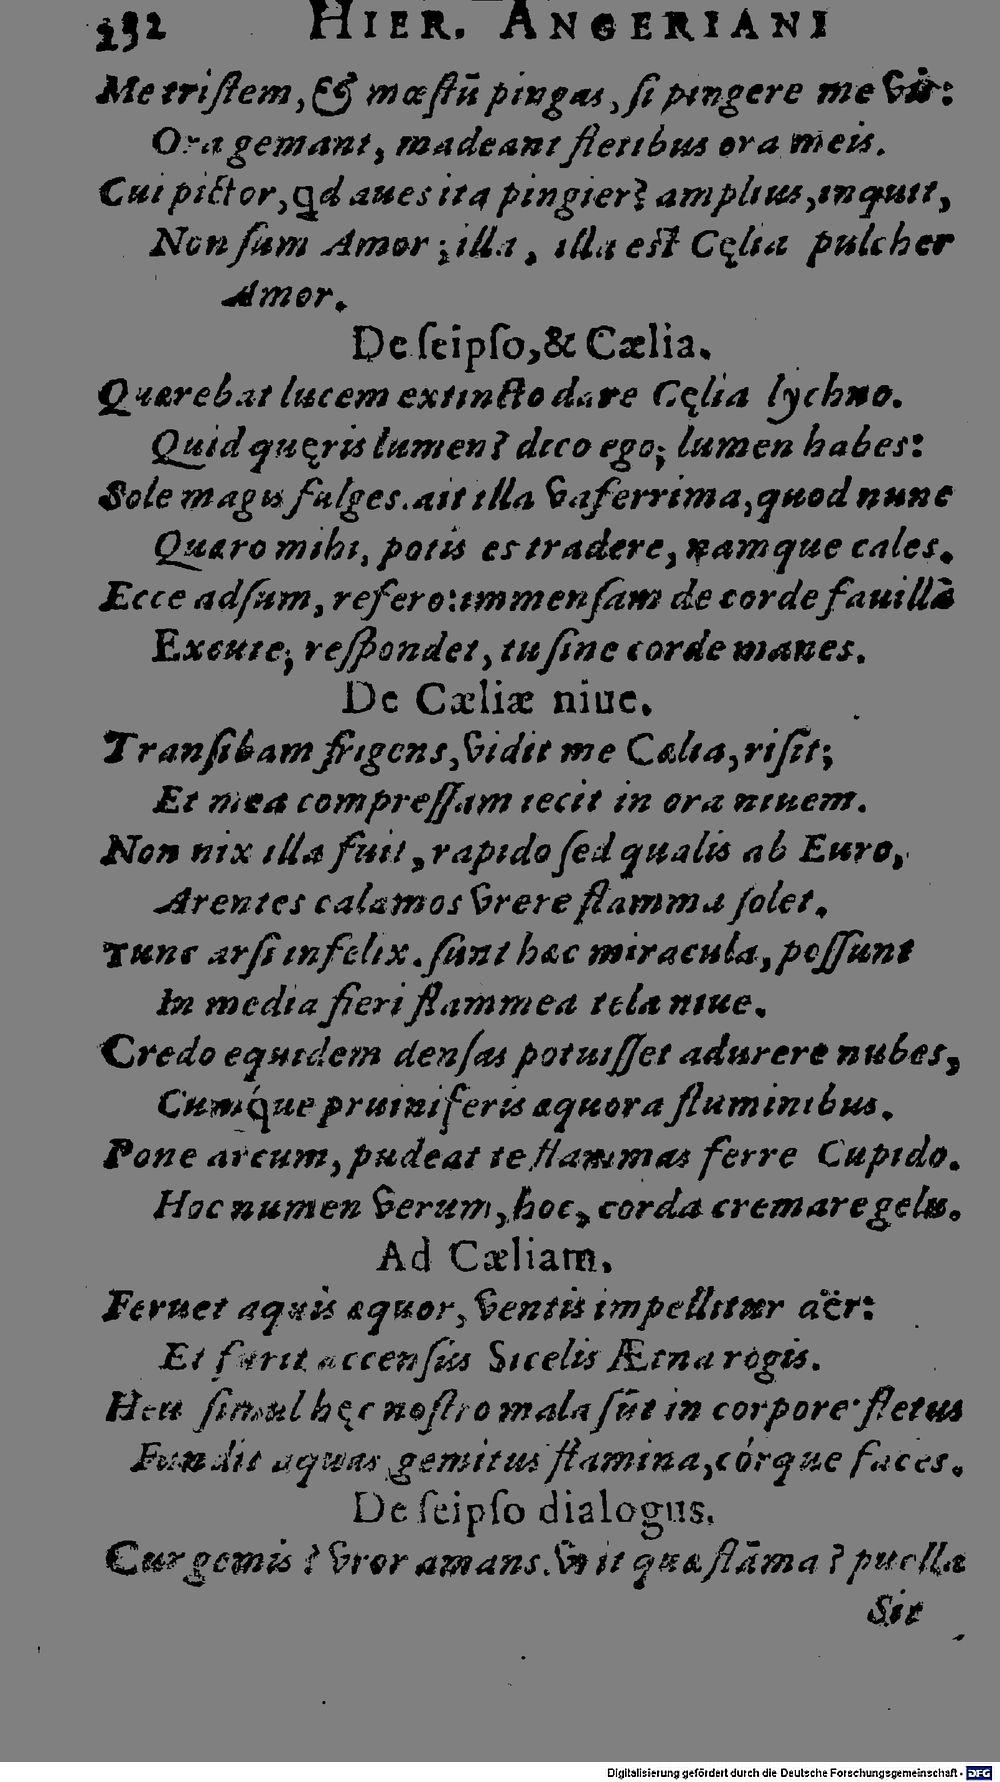 232 HIER. ANGERIANI
Me triſtem, & mœſtū pingas, ſi pingere me vis:
Ora gemant, madeant fletibus ora meis.
Cui pictor, qd aues ita pingier? amplius, inquit,
Non ſum Amor; illa, illa eſt Cęlia pulcher
Amor.
De ſeipſo, & Cælia.
Quærebat lucem extincto dare Cęlia lychno.
Quid quęris lumen? dico ego; lumen habes:
Sole magis fulges. ait illa vaferrima, quod nunc
Quæro mihi, potis es tradere, namque cales.
Ecce adſum, refero: immenſam de corde fauillā
Excute; reſpondet, tu ſine corde manes.
De Cæliæ niue.
Tranſibam frigens, vidit me Cælia, riſit;
Et mea compreſſam iecit in ora niuem.
Non nix illa fuit, rapido ſed qualis ab Euro,
Arentes calamos vrere flamma ſolet.
Tunc arſi infelix. ſunt hæc miracula, poſſunt
In media fieri flammea tela niue.
Credo equidem denſas potuiſſet adurere nubes,
Cumq́ue pruiniferis æquora fluminibus.
Pone arcum, pudeat te flammas ferre Cupido.
Hoc numen verum, hoc, corda cremare gelu.
Ad Cæliam.
Feruet aquis æquor, ventis impellitur aër:
Et furit accenſus Sicelis Ætna rogis.
Heu ſimul hęc noſtro mala ſūt in corpore fletus
Fundit aquas gemitus flamina, córque faces.
De ſeipſo dialogus.
Cur gemis? vror amans. vrit quæ flāma? puella
Sit
Digitalisierung gefördert durch die Deutsche Forschungsgemeinschaft - DFG